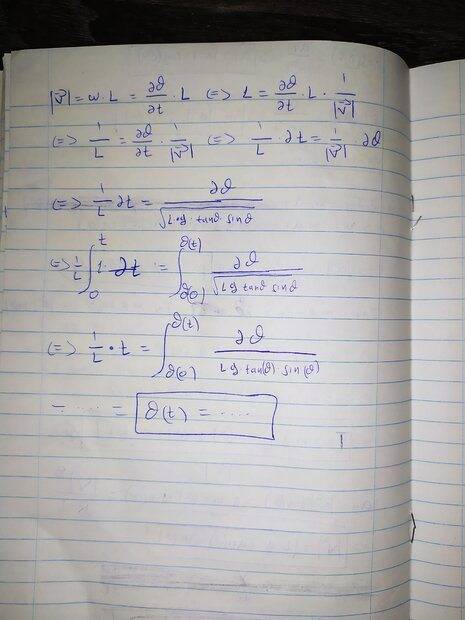 |v⃗| = ω · L = ∂ϑ/∂t · L <=> 1 = ∂ϑ/∂t · L · 1/|v⃗|
<=> 1/L = ∂ϑ/∂t · 1/|v⃗| <=> 1/L · ∂t = 1/|v⃗| · ∂ϑ
<=> 1/L ∂t = ∂ϑ/√(L·g·tanϑ·sinϑ)
<=> 1/L ∫₀ᵗ 1·∂t = ∫_{ϑ(0)}^{ϑ(t)} ∂ϑ/√(Lg tanϑ sinϑ)
<=> 1/L · t = ∫_{ϑ(0)}^{ϑ(t)} ∂ϑ/(Lg tan(ϑ) · sin(ϑ))
- ..... = ϑ(t) = .....